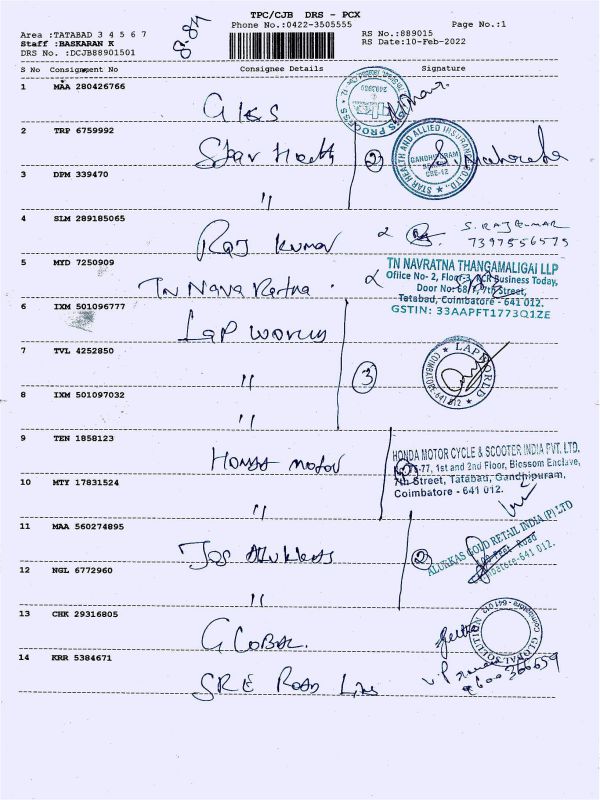 TPC/CJB DRS - PCX
Phone No.:0422-3505555
Page No.:1
Area :TATABAD 3 4 5 6 7
Staff :BASKARAN K
DRS No. :DCJB88901501
RS No.:889015
RS Date:10-Feb-2022
S No Consignment No Consignee Details Signature
1 MAA 280426766
GKS
2 TRP 6759992
Star Health 2
STAR HEALTH AND ALLIED INSURANCE CO.LTD.,
GANDHIPURAM
CBE-12
3 DPM 339470
"
4 SLM 289185065
Raj Kumar
S. RAJKUMAR
7397556575
5 MYD 7250909
TN Nava Ratna
TN NAVRATNA THANGAMALIGAI LLP
Office No- 2, Floor-3, Business Today,
Door No: 68/7, 7th Street,
Tatabad, Coimbatore - 641 012.
GSTIN: 33AAPFT1773Q1ZE
6 IXM 501096777
Lap World
7 TVL 4252850
" 3
LAP WORLD
COIMBATORE-641 012
8 IXM 501097032
"
9 TEN 1858123
Honda motor
HONDA MOTOR CYCLE & SCOOTER INDIA PVT. LTD.
1st and 2nd Floor, Blossom Enclave,
7th Street, Tatabad, Gandhipuram,
Coimbatore - 641 012.
10 MTY 17831524
"
11 MAA 560274895
Jos Alukkas 2
ALUKKAS GOLD RETAIL INDIA (P) LTD
12 NGL 6772960
"
13 CHK 29316805
GLOBAL
GLOBAL SOLUTION
Coimbatore - 641 012
14 KRR 5384671
SRE Road Line
9600366659